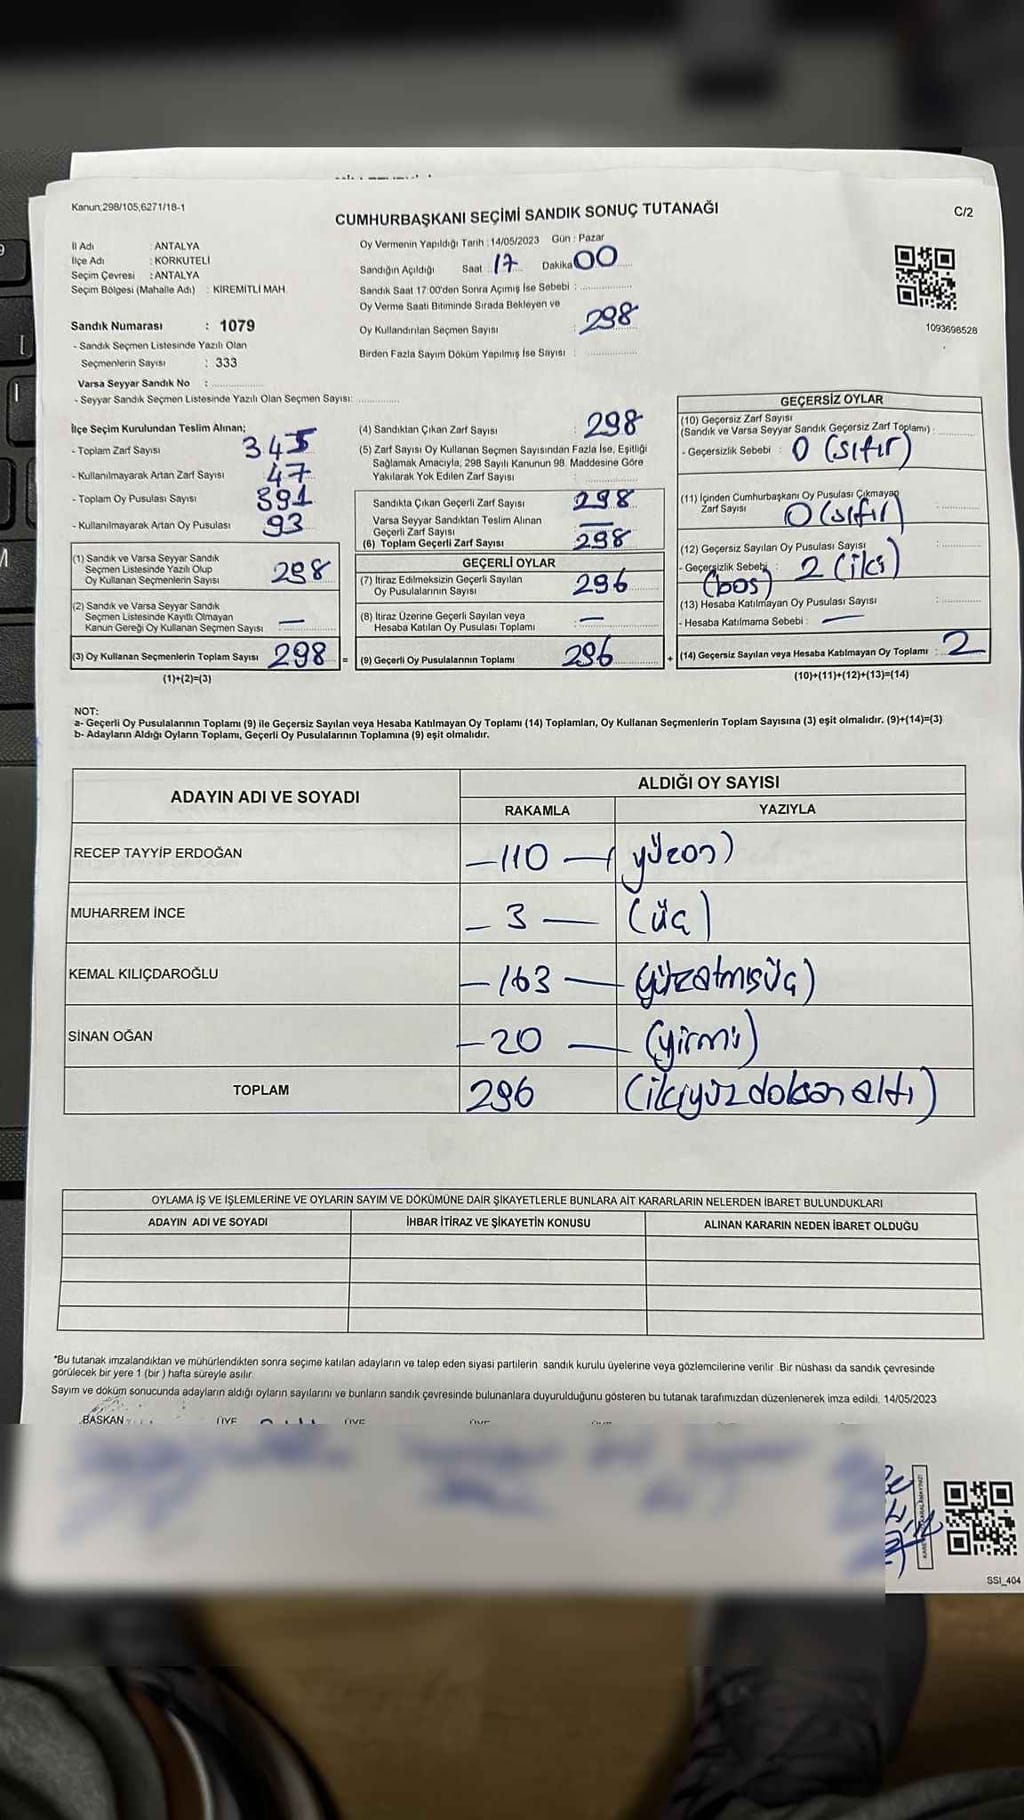 Kanun;298/105,6271/18-1
CUMHURBAŞKANI SEÇİMİ SANDIK SONUÇ TUTANAĞI
C/2
İl Adı : ANTALYA
İlçe Adı : KORKUTELİ
Seçim Çevresi : ANTALYA
Seçim Bölgesi (Mahalle Adı) : KİREMİTLİ MAH.
Sandık Numarası : 1079
- Sandık Seçmen Listesinde Yazılı Olan
Seçmenlerin Sayısı : 333
Varsa Seyyar Sandık No :
- Seyyar Sandık Seçmen Listesinde Yazılı Olan Seçmen Sayısı:
Oy Vermenin Yapıldığı Tarih : 14/05/2023 Gün : Pazar
Sandığın Açıldığı Saat : 17 Dakika 00
Sandık Saat 17.00'den Sonra Açımış İse Sebebi :
Oy Verme Saati Bitiminde Sırada Bekleyen ve
Oy Kullandırılan Seçmen Sayısı : 298
Birden Fazla Sayım Döküm Yapılmış İse Sayısı :
1093698528
İlçe Seçim Kurulundan Teslim Alınan;
- Toplam Zarf Sayısı 345
- Kullanılmayarak Artan Zarf Sayısı 47
- Toplam Oy Pusulası Sayısı 391
- Kullanılmayarak Artan Oy Pusulası 93
(1) Sandık ve Varsa Seyyar Sandık
Seçmen Listesinde Yazılı Olup
Oy Kullanan Seçmenlerin Sayısı 298
(2) Sandık ve Varsa Seyyar Sandık
Seçmen Listesinde Kayıtlı Olmayan
Kanun Gereği Oy Kullanan Seçmen Sayısı —
(3) Oy Kullanan Seçmenlerin Toplam Sayısı 298 =
(1)+(2)=(3)
(4) Sandıktan Çıkan Zarf Sayısı 298
(5) Zarf Sayısı Oy Kullanan Seçmen Sayısından Fazla İse, Eşitliği
Sağlamak Amacıyla, 298 Sayılı Kanunun 98. Maddesine Göre
Yakılarak Yok Edilen Zarf Sayısı
Sandıkta Çıkan Geçerli Zarf Sayısı 298
Varsa Seyyar Sandıktan Teslim Alınan
Geçerli Zarf Sayısı —
(6) Toplam Geçerli Zarf Sayısı 298
GEÇERLİ OYLAR
(7) İtiraz Edilmeksizin Geçerli Sayılan
Oy Pusulalarının Sayısı 296
(8) İtiraz Üzerine Geçerli Sayılan veya
Hesaba Katılan Oy Pusulası Toplamı —
(9) Geçerli Oy Pusulalarının Toplamı 296 +
GEÇERSİZ OYLAR
(10) Geçersiz Zarf Sayısı
(Sandık ve Varsa Seyyar Sandık Geçersiz Zarf Toplamı) :
- Geçersizlik Sebebi : 0 (sıfır)
(11) İçinden Cumhurbaşkanı Oy Pusulası Çıkmayan
Zarf Sayısı 0 (sıfır)
(12) Geçersiz Sayılan Oy Pusulası Sayısı :
- Geçersizlik Sebebi : 2 (iki)
(boş)
(13) Hesaba Katılmayan Oy Pusulası Sayısı :
- Hesaba Katılmama Sebebi : —
(14) Geçersiz Sayılan veya Hesaba Katılmayan Oy Toplamı : 2
(10)+(11)+(12)+(13)=(14)
NOT:
a- Geçerli Oy Pusulalarının Toplamı (9) ile Geçersiz Sayılan veya Hesaba Katılmayan Oy Toplamı (14) Toplamları, Oy Kullanan Seçmenlerin Toplam Sayısına (3) eşit olmalıdır. (9)+(14)=(3)
b- Adayların Aldığı Oyların Toplamı, Geçerli Oy Pusulalarının Toplamına (9) eşit olmalıdır.
ADAYIN ADI VE SOYADI
ALDIĞI OY SAYISI
RAKAMLA YAZIYLA
RECEP TAYYİP ERDOĞAN —110— (yüzon)
MUHARREM İNCE — 3 — (üç)
KEMAL KILIÇDAROĞLU —163— (yüzatmışüç)
SİNAN OĞAN —20— (yirmi)
TOPLAM 296 (ikiyüzdoksanaltı)
OYLAMA İŞ VE İŞLEMLERİNE VE OYLARIN SAYIM VE DÖKÜMÜNE DAİR ŞİKAYETLERLE BUNLARA AİT KARARLARIN NELERDEN İBARET BULUNDUKLARI
ADAYIN ADI VE SOYADI İHBAR İTİRAZ VE ŞİKAYETİN KONUSU ALINAN KARARIN NEDEN İBARET OLDUĞU
*Bu tutanak imzalandıktan ve mühürlendikten sonra seçime katılan adayların ve talep eden siyasi partilerin sandık kurulu üyelerine veya gözlemcilerine verilir .Bir nüshası da sandık çevresinde
görülecek bir yere 1 (bir ) hafta süreyle asılır.
Sayım ve döküm sonucunda adayların aldığı oyların sayılarını ve bunların sandık çevresinde bulunanlara duyurulduğunu gösteren bu tutanak tarafımızdan düzenlenerek imza edildi. 14/05/2023
BAŞKAN ÜYE ÜYE ÜYE
SSI_404